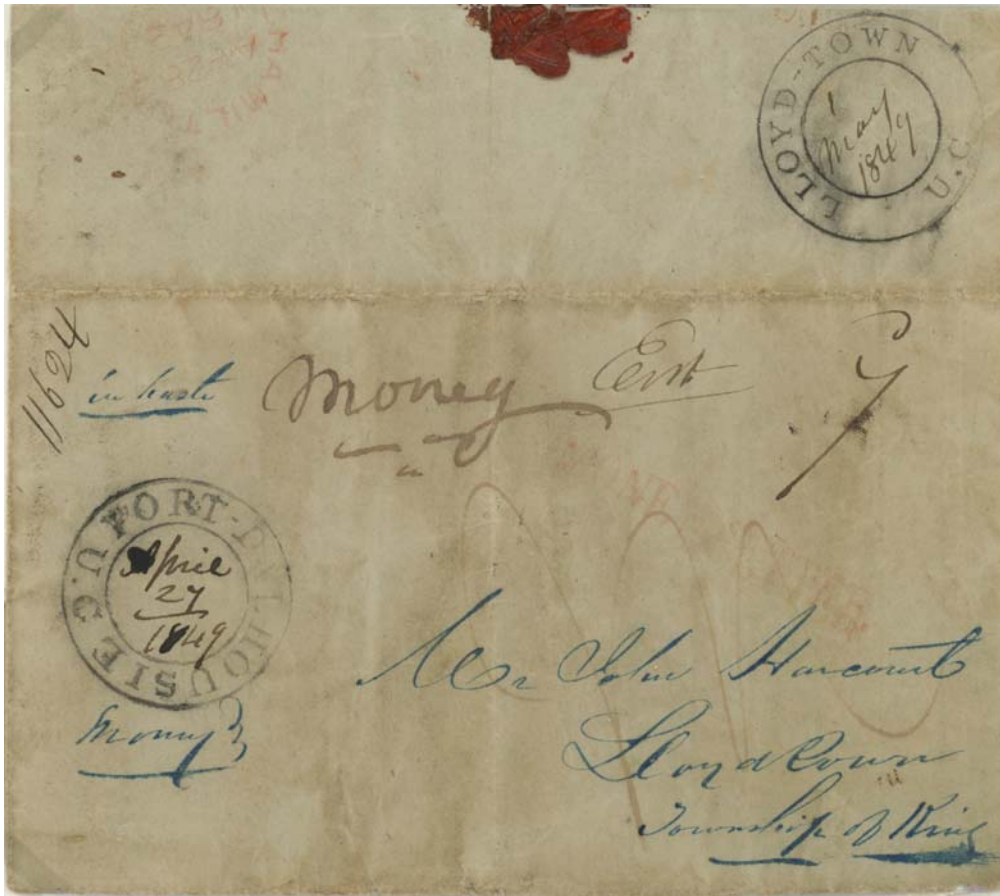 HAMILT
LLOYD-TOWN U.C
1
May
1849
11624
in haste
Money
7
PORT-DALHOUSIE U.C
April
27
1849
Money
Mr John Harcourt
Lloydtown
Township of King